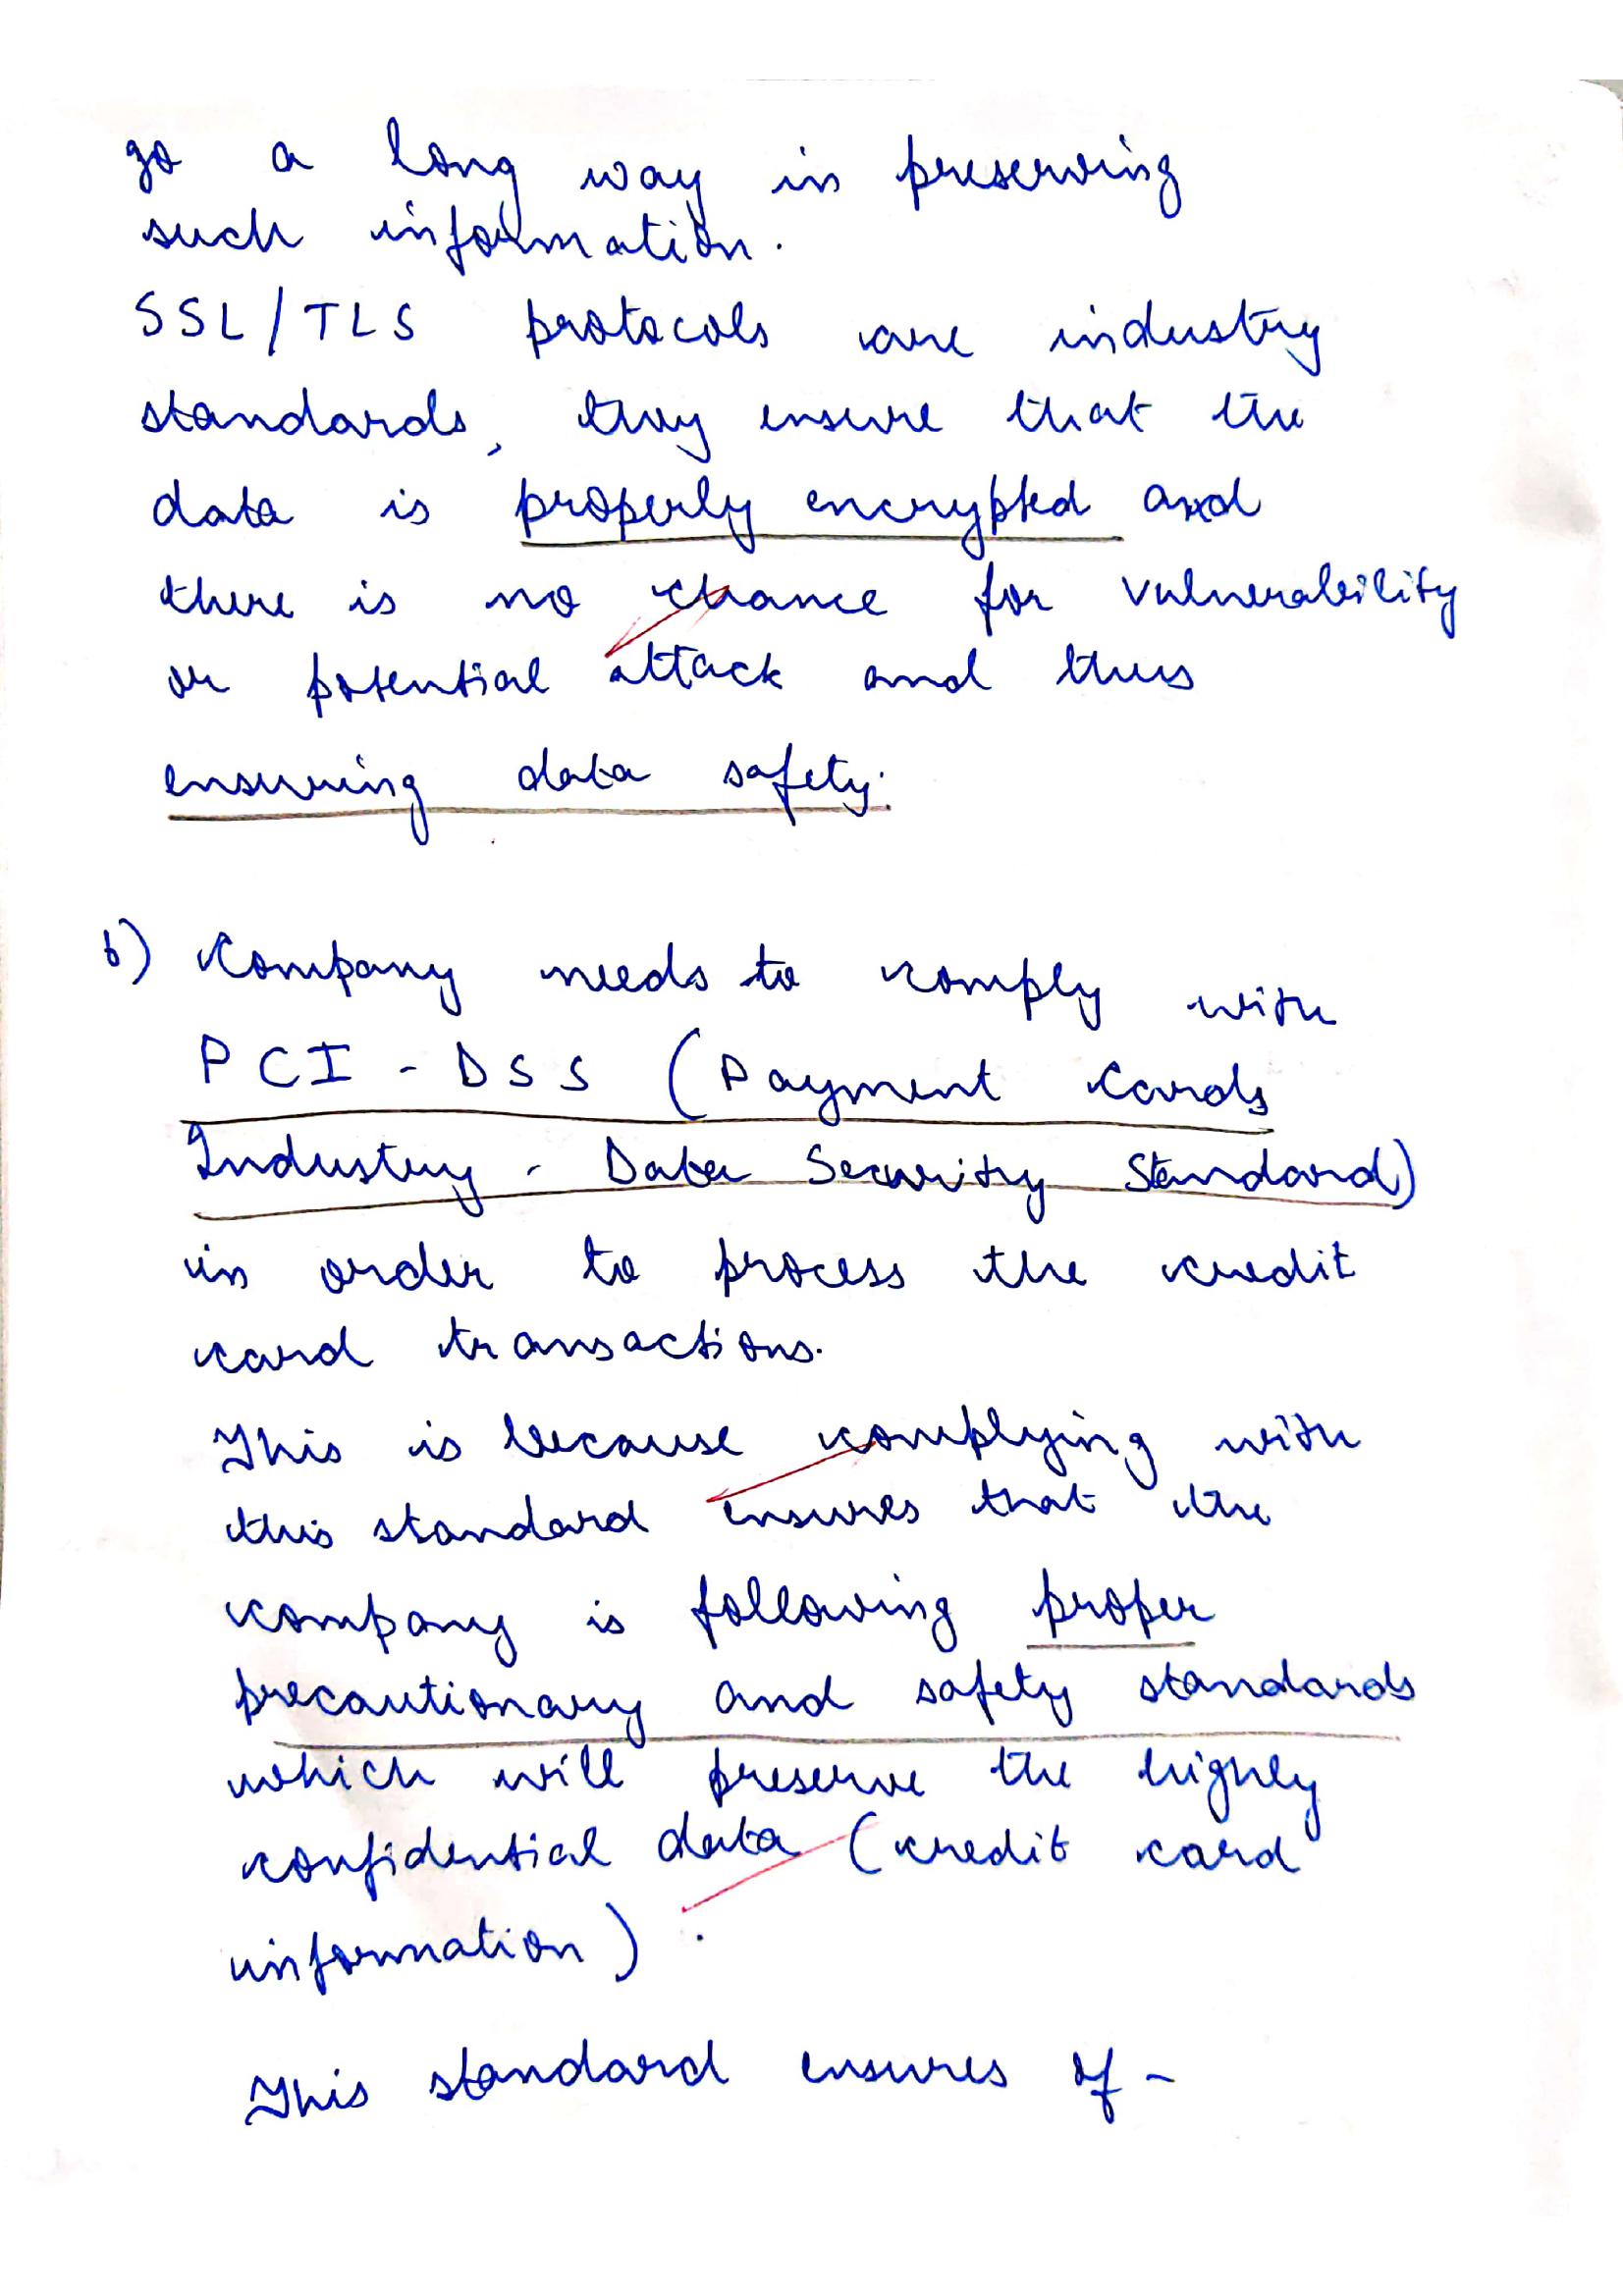 go a long way in preserving
such information.
SSL/TLS protocols are industry
standards, they ensure that the
data is properly encrypted and
there is no chance for vulnerability
or potential attack and thus
ensuring data safety.
b) Company needs to comply with
PCI - DSS (Payment Cards
Industry - Data Security Standard)
in order to process the credit
card transactions.
This is because complying with
this standard ensures that the
company is following proper
precautionary and safety standards
which will preserve the highly
confidential data (credit card
information).
This standard ensures of -